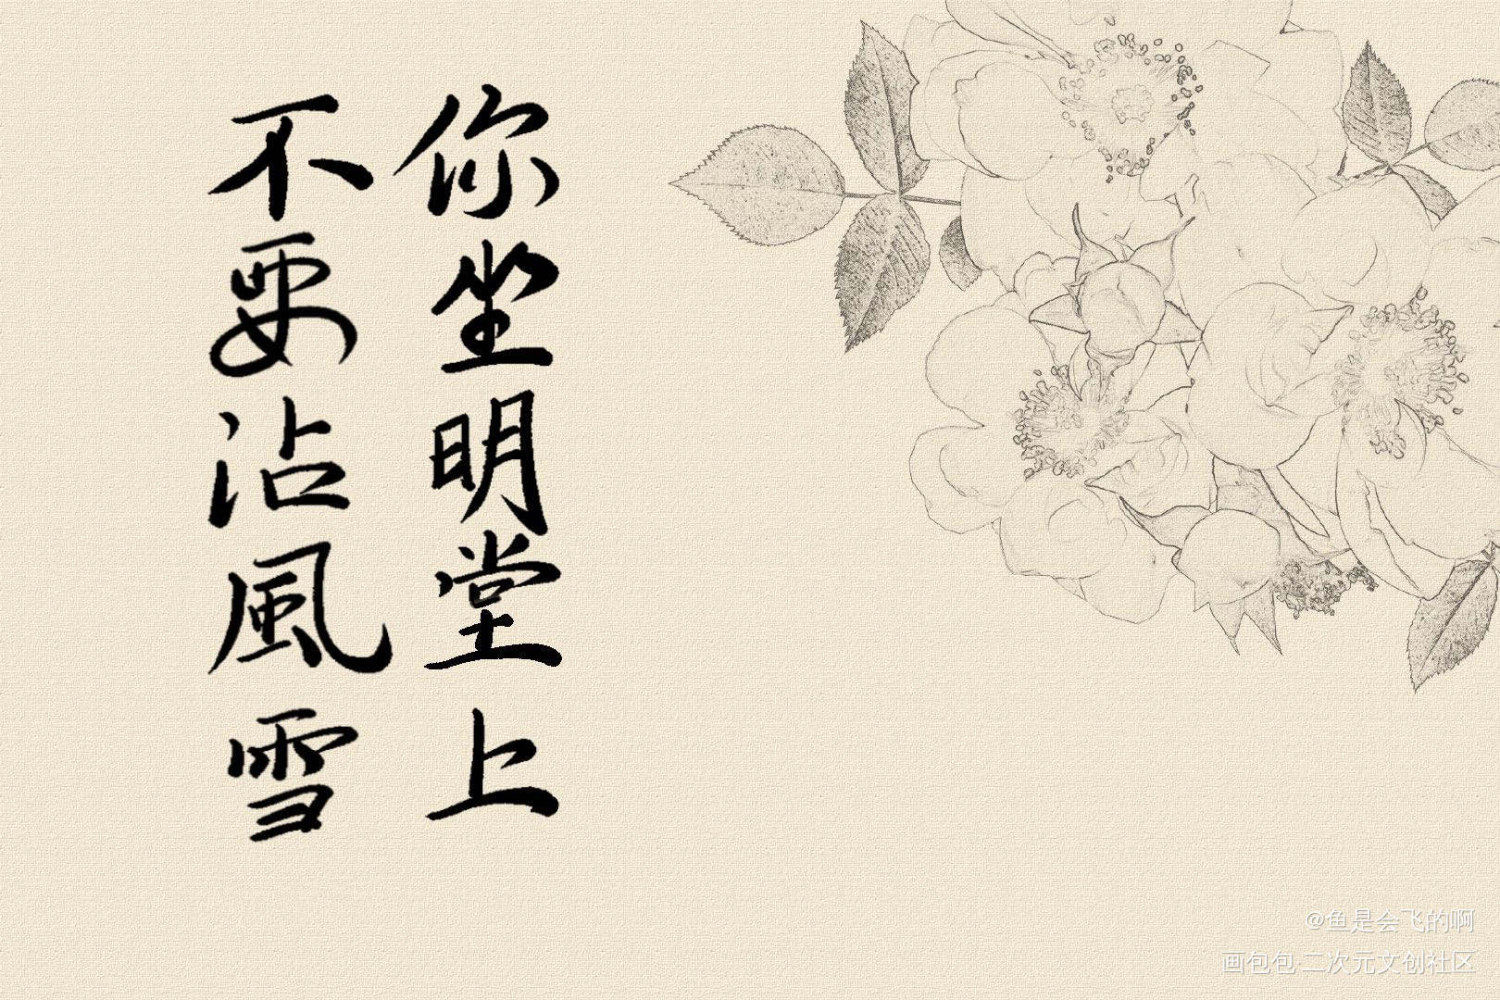 你坐明堂上
不要沾風雪
@鱼是会飞的啊
画包包·二次元文创社区